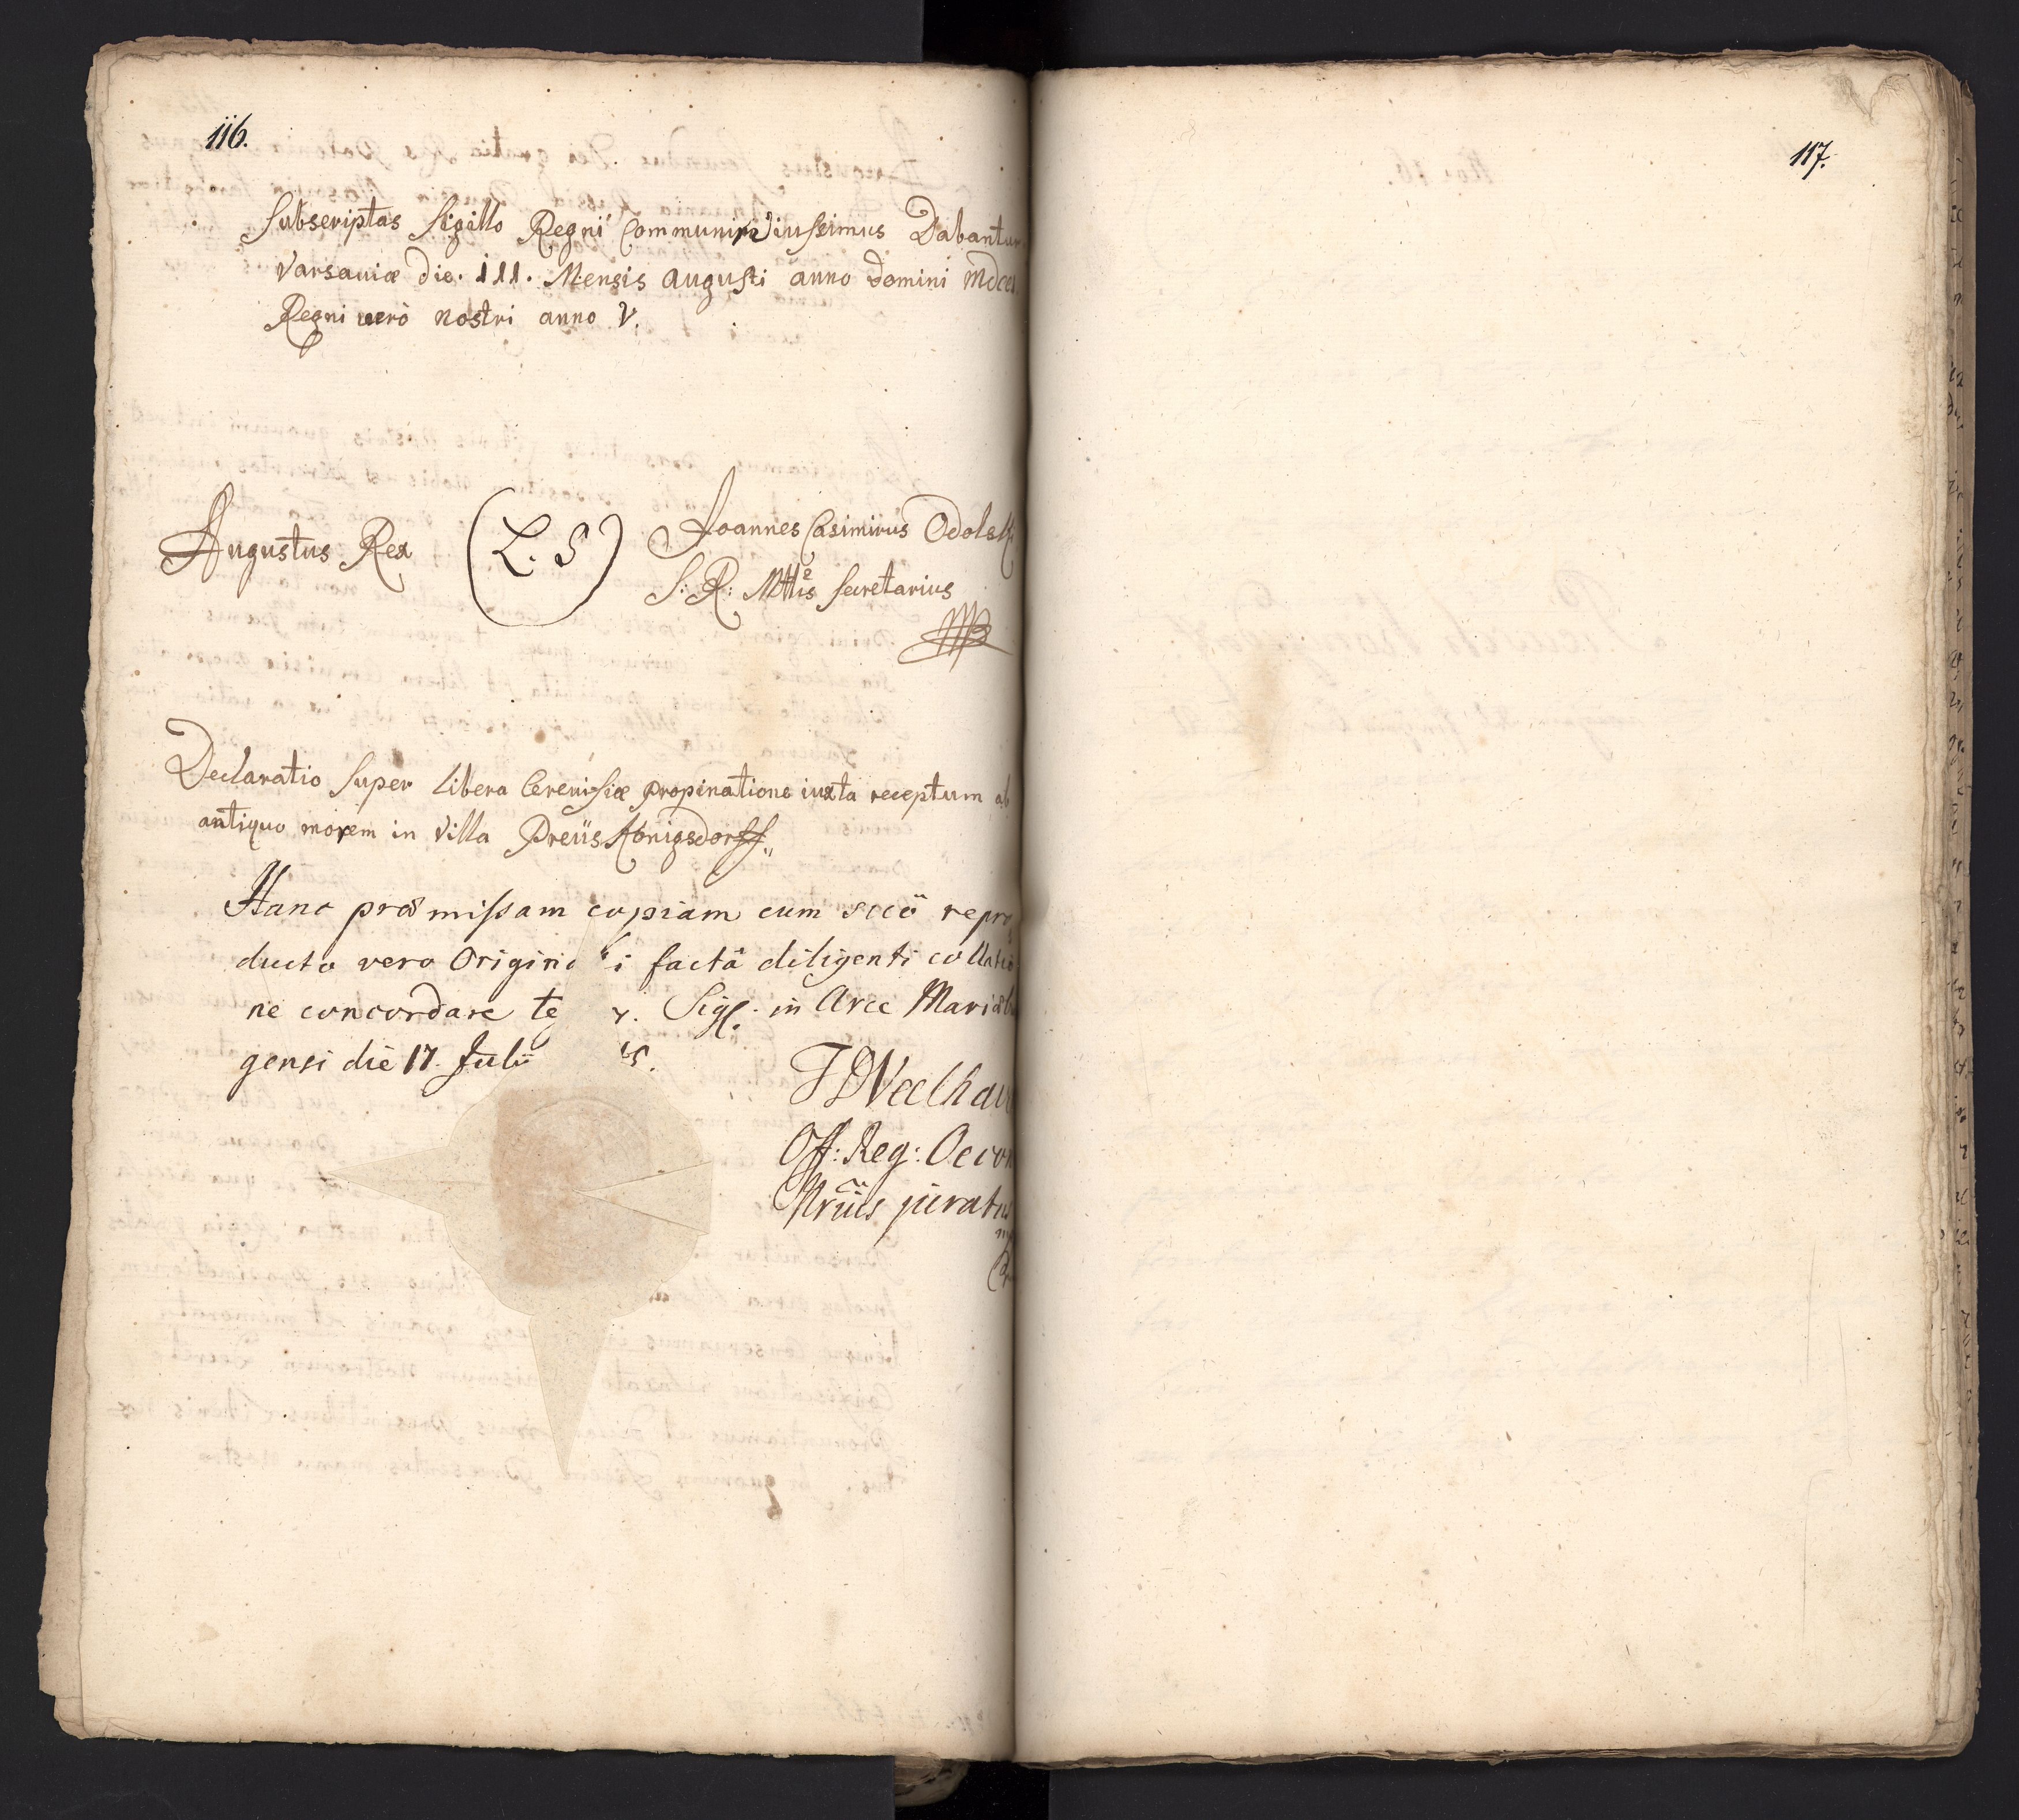 116.
Subscriptas Sigillo Regni Communire iussimus Dabantur
Varsaviæ die. 111. Mensis Augusti anno Domini
Regni verò nostri anno V.
Augustus Rex
(L. S)
Joannes Casimirus
S: R: Mttis Secretarius
Declaratio Super libera Cerevisiæ propinatione iuxta receptum ab
antiquo morem in Villa Preüs Königsdorff„
Hanc præmissam copiam cum repro
ducto vero Origin i factâ diligenti collatio
ne concordare te r. Sigl. in Arce Mariæb
gensi die 17. Julii
Off: Reg: Oecon
juratus
117.